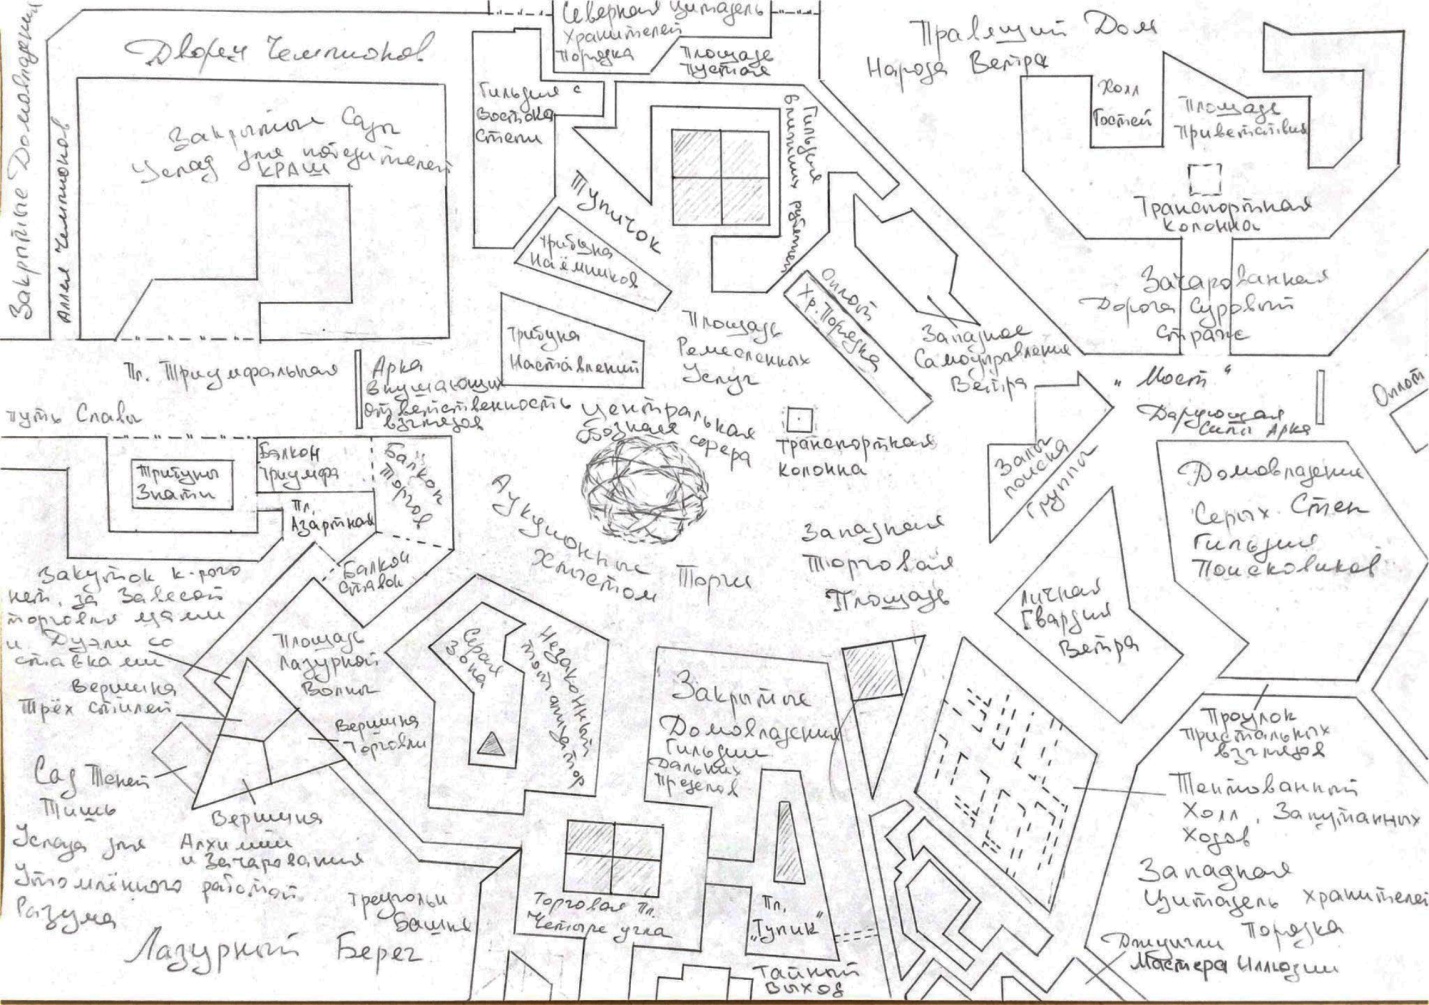 Закрытые Домовладения
Аллея Чемпионов
Дворец Чемпионов
Закрытые Сады
Услад для победителей
КРАШ
Северная Цитадель
Хранителей
Порядка
Площадь
Пустая
Гильдия с
Востока
Степи
Тупичок
Гильдия
Трибуна
Наёмников
Трибуна
Наставлений
Площадь
Ремесленных
Услуг
Оплот
Хр. Порядка
Западное
Самоуправление
Ветра
Правящий Дом
Народа Ветра
Холл
Гостей
Площадь
Приветствия
Транспортная
колонна
Зачарованная
Дорога Суровый
Страж
"Мост"
Дарующая
Силы Арка
Оплот
Пл. Триумфальная
путь Славы
Арка
внушающих
ответственность
взглядов
Центральная
обозная сфера
Транспортная
колонна
Залы
поиска
группы
Трибуны
Знати
Балкон
Триумфа
Балкон
Торгов
Пл.
Азартная
Балкон
Ставок
Аукционные
Хлыстом
Торги
Западная
Торговая
Площадь
Личная
Гвардия
Ветра
Домовладение
Серых Стен
Гильдия
Поисковиков
Закуток к-рого
нет, за Завесой
торговля
и Дуэли со
ставками
Вершина
Трёх стилей
Площадь
Лазурной
Волны
Вершина
Торговли
Сад Теней
Тишь
Услада для
Утомлённого работой
Разума
Вершина
Алхимии
и Зачарования
Треугольн
Башня
Лазурный Берег
Серая
Зона
Незаконный
Закрытые
Домовладения
Гильдии
Дальних
Пределов
Торговая Пл.
"Четыре угла
Пл.
"Тупик"
Тайный
выход
Проулок
Пристальных
взглядов
Тентованный
Холл, Запутанных
Ходов
Западная
Цитадель Хранителей
Порядка
Джунгли
Мастера Иллюзии